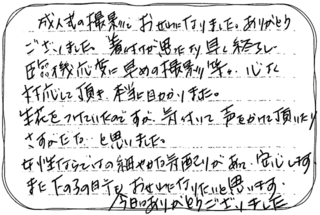 成人式の撮影にお世話に行りました。ありがとう
ございました。着付けが思たより早く終了し
臨機応変に早めの撮影等。心よく
対応して頂き、本当に助かりました。
生花をつけていたのですが、気づいて声をかけて頂いたり
さすがだな…と思いました。
女性ならではの細やかな気配りがあって、安心します。
また たのろの日でも お世話に行りたいと思います。
今日はありがとうございました